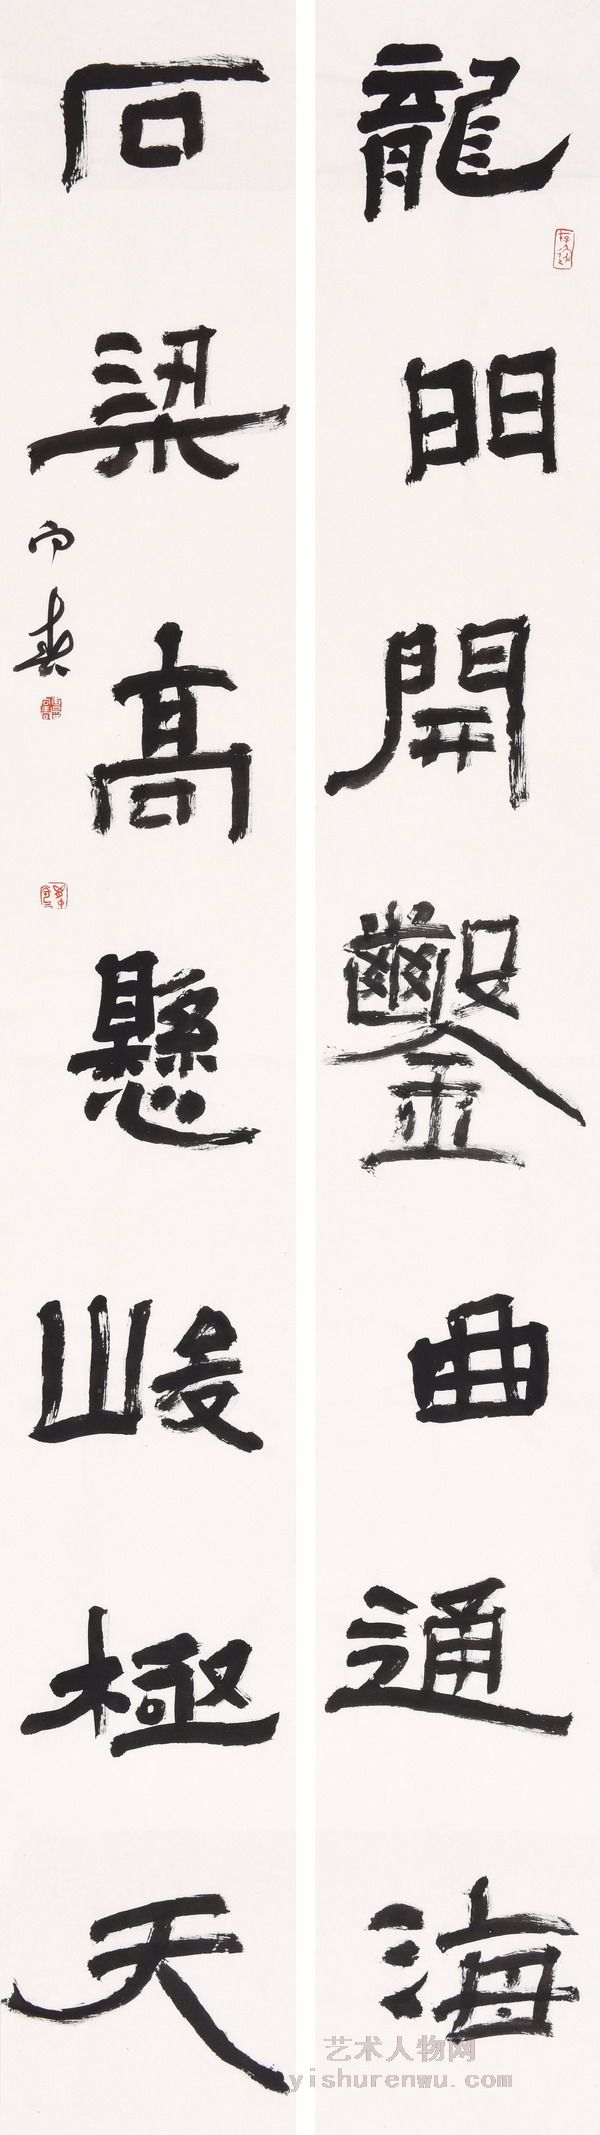 龍門開鑿曲通海
石梁高懸峻極天
向春
艺术人物网
yishurenwu.com